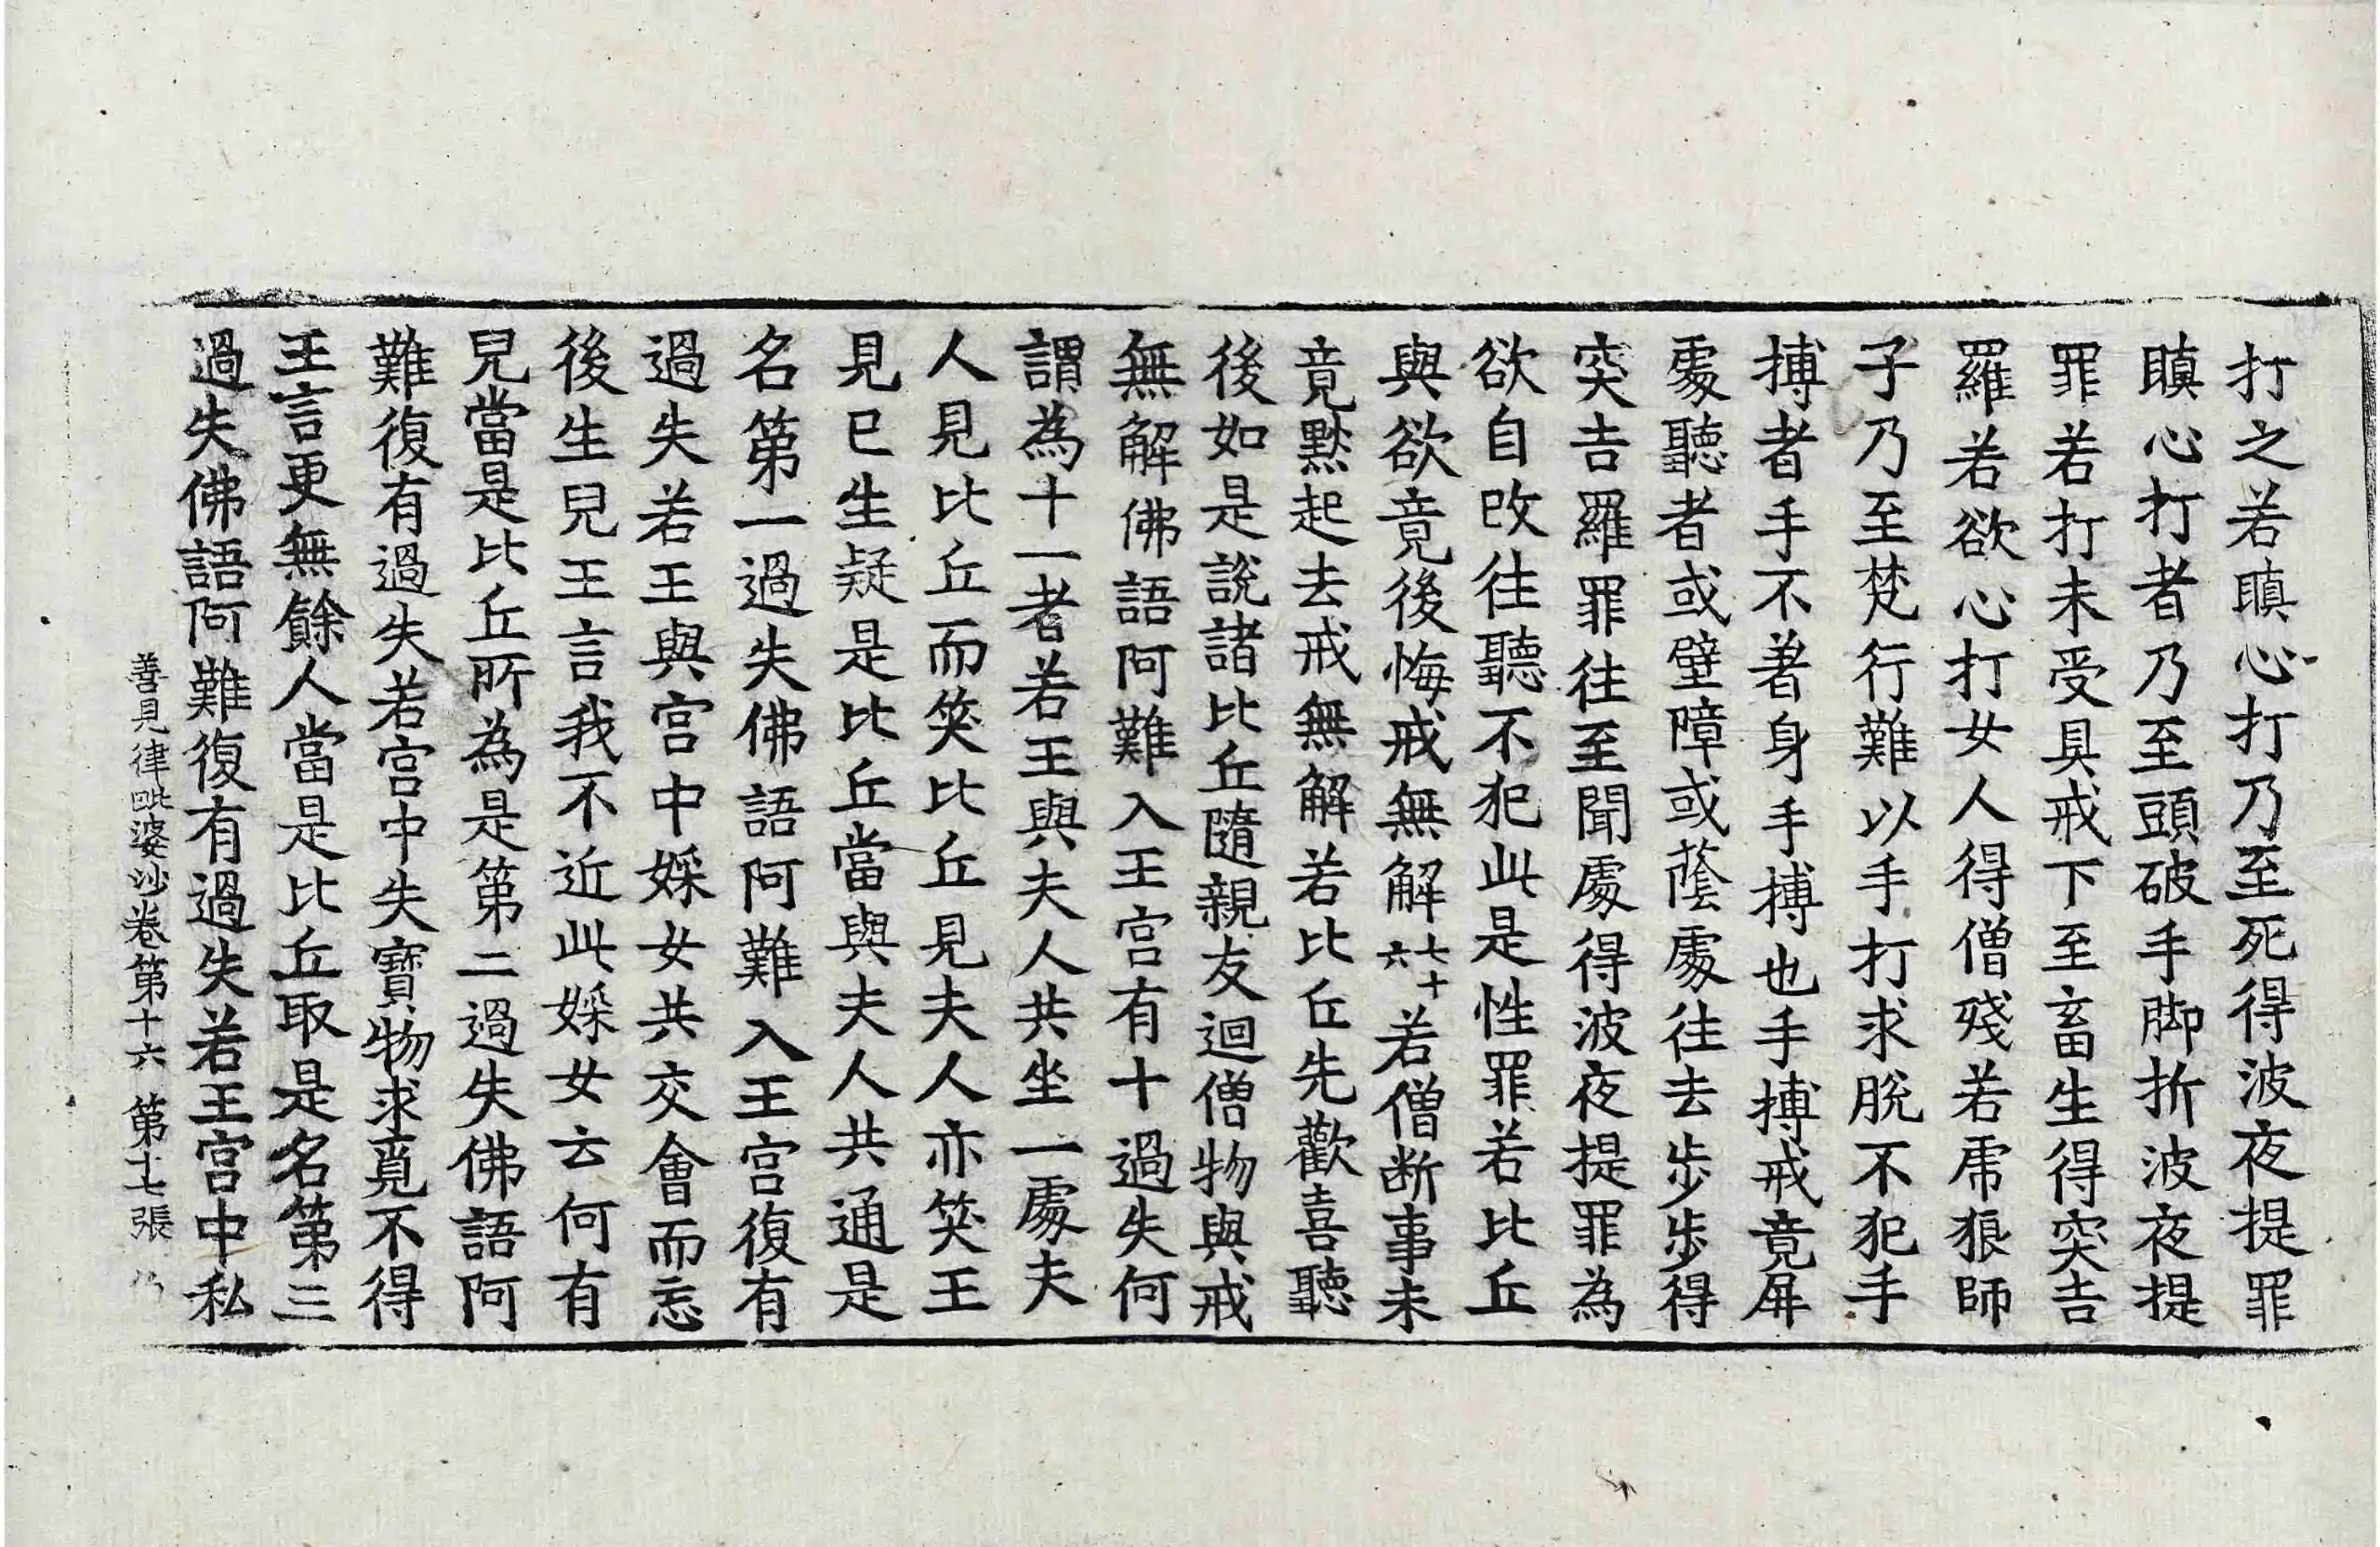 打之若瞋心打乃至死得波夜提罪
瞋心打者乃至頭破手脚折波夜提
罪若打未受具戒下至畜生得突吉
羅若欲心打女人得僧殘若乕狼師
子乃至梵行難以手打求脫不犯手
搏者手不著身手搏也手搏戒竟屏
處聽者或壁障或蔭處往去步步得
突吉羅罪往至聞處得波夜提罪為
欲自改往聽不犯此是性罪若比丘
與欲竟後悔戒無解七十六若僧断事未
竟默起去戒無解若比丘先歡喜聽
後如是說諸比丘隨親友迴僧物與戒
無解佛語阿難入王宮有十過失何
謂為十一者若王與夫人共坐一處夫
人見比丘而笑比丘見夫人亦笑王
見已生疑是比丘當與夫人共通是
名第一過失佛語阿難入王宮復有
過失若王與宮中婇女共交會而忘
後生兒王言我不近此婇女云何有
兒當是比丘所為是第二過失佛語阿
難復有過失若宮中失寶物求覓不得
王言更無餘人當是比丘取是名第三
過失佛語阿難復有過失若王宮中私
善見律毗婆沙卷第十六　第十七張　乃